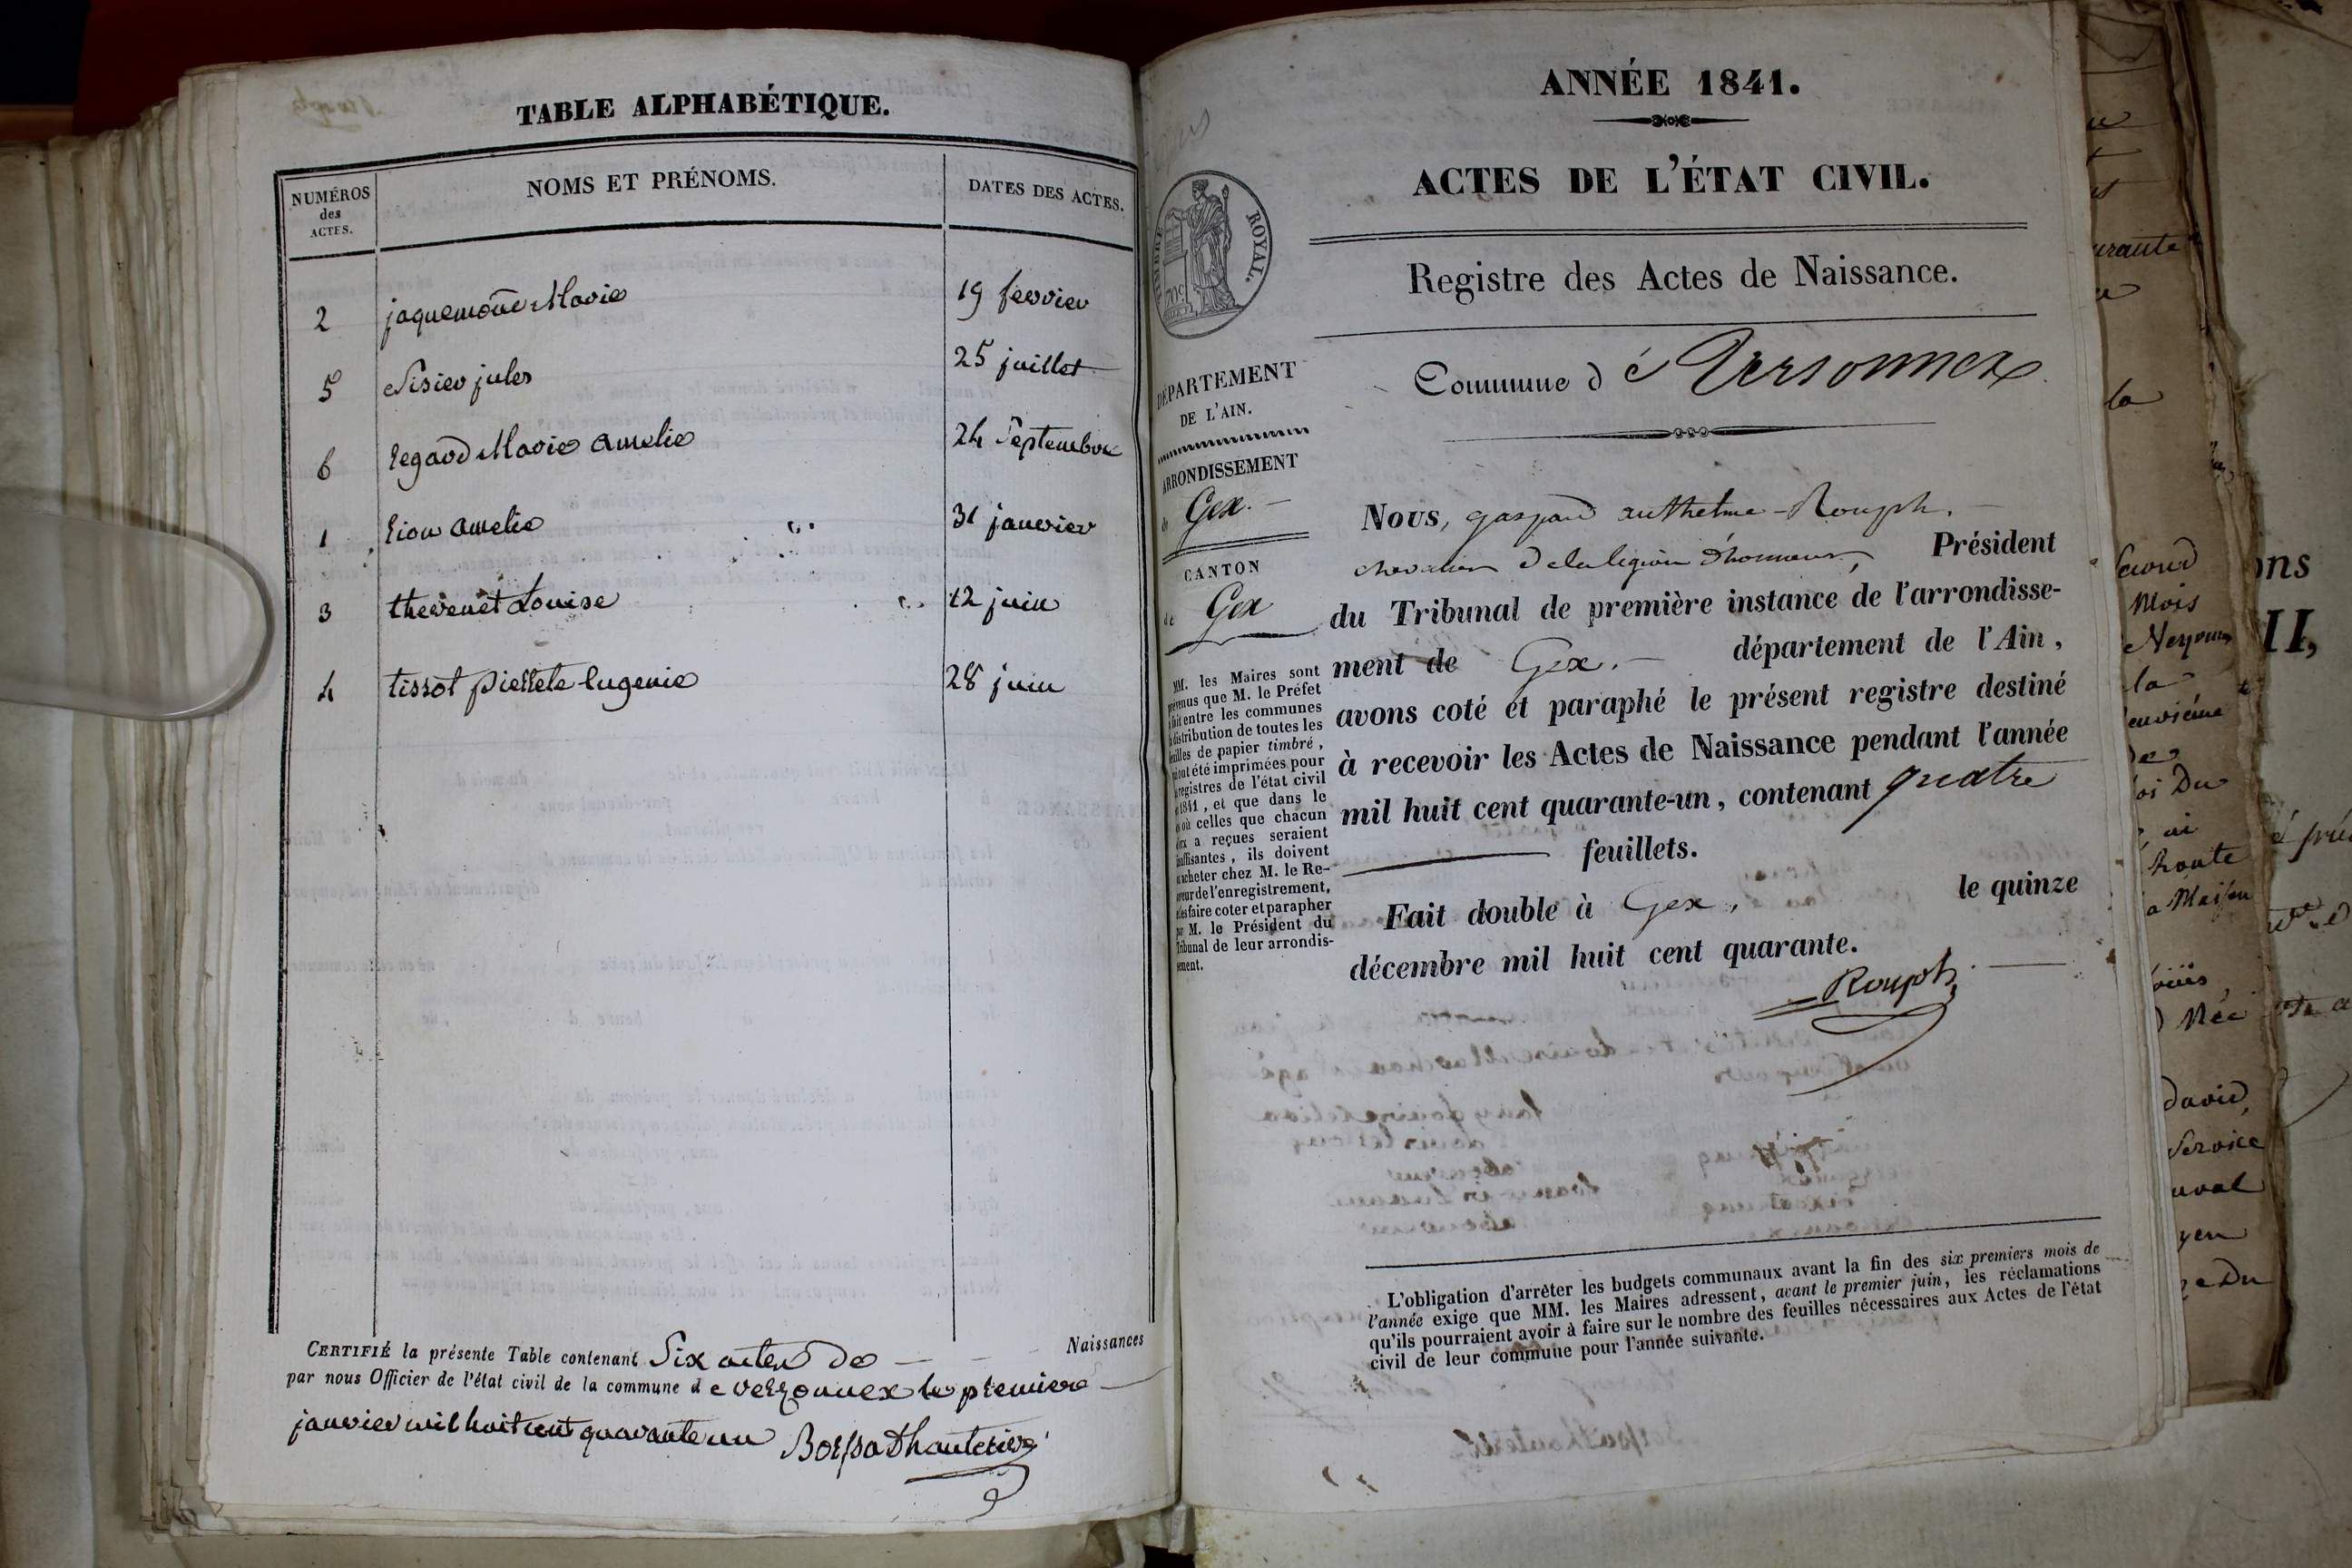 TABLE ALPHABÉTIQUE.
NUMÉROS
des
ACTES.
NOMS ET PRÉNOMS.
DATES DES ACTES.
2 Marie 19 fevrier
5 jules 25 juillet
6 Regard Marie amelie 24 Septembre
1 Lion amelie 31 janvier
3 thevenet Louise 12 juin
4 tissot pierrete Eugenie 28 juin
CERTIFIÉ la présente Table contenant Six actes de Naissances
par nous Officier de l'état civil de la commune de versonnex le premier
janvier mil huit cent quarante un
ANNÉE 1841.
ACTES DE L'ÉTAT CIVIL.
Registre des Actes de Naissance.
TIMBRE ROYAL.
Commune de Versonnex
DÉPARTEMENT
DE L'AIN.
ARRONDISSEMENT
de Gex.
CANTON
de Gex
MM. les Maires sont
prévenus que M. le Préfet
a fait entre les communes
la distribution de toutes les
feuilles de papier timbré,
qui ont été imprimées pour
les registres de l'état civil
de 1841, et que dans le
cas où celles que chacun
d'eux a reçues seraient
insuffisantes, ils doivent
en acheter chez M. le Re-
ceveur de l'enregistrement,
et les faire coter et parapher
par M. le Président du
Tribunal de leur arrondis-
sement.
Nous, gaspard anthelme Rouph,
chevalier de la legion d'honneur, Président
du Tribunal de première instance de l'arrondisse-
ment de Gex. département de l'Ain,
avons coté et paraphé le présent registre destiné
à recevoir les Actes de Naissance pendant l'année
mil huit cent quarante-un, contenant quatre
feuillets.
Fait double à Gex, le quinze
décembre mil huit cent quarante.
Rouph
L'obligation d'arrêter les budgets communaux avant la fin des six premiers mois de
l'année exige que MM. les Maires adressent, avant le premier juin, les réclamations
qu'ils pourraient avoir à faire sur le nombre des feuilles nécessaires aux Actes de l'état
civil de leur commune pour l'année suivante.